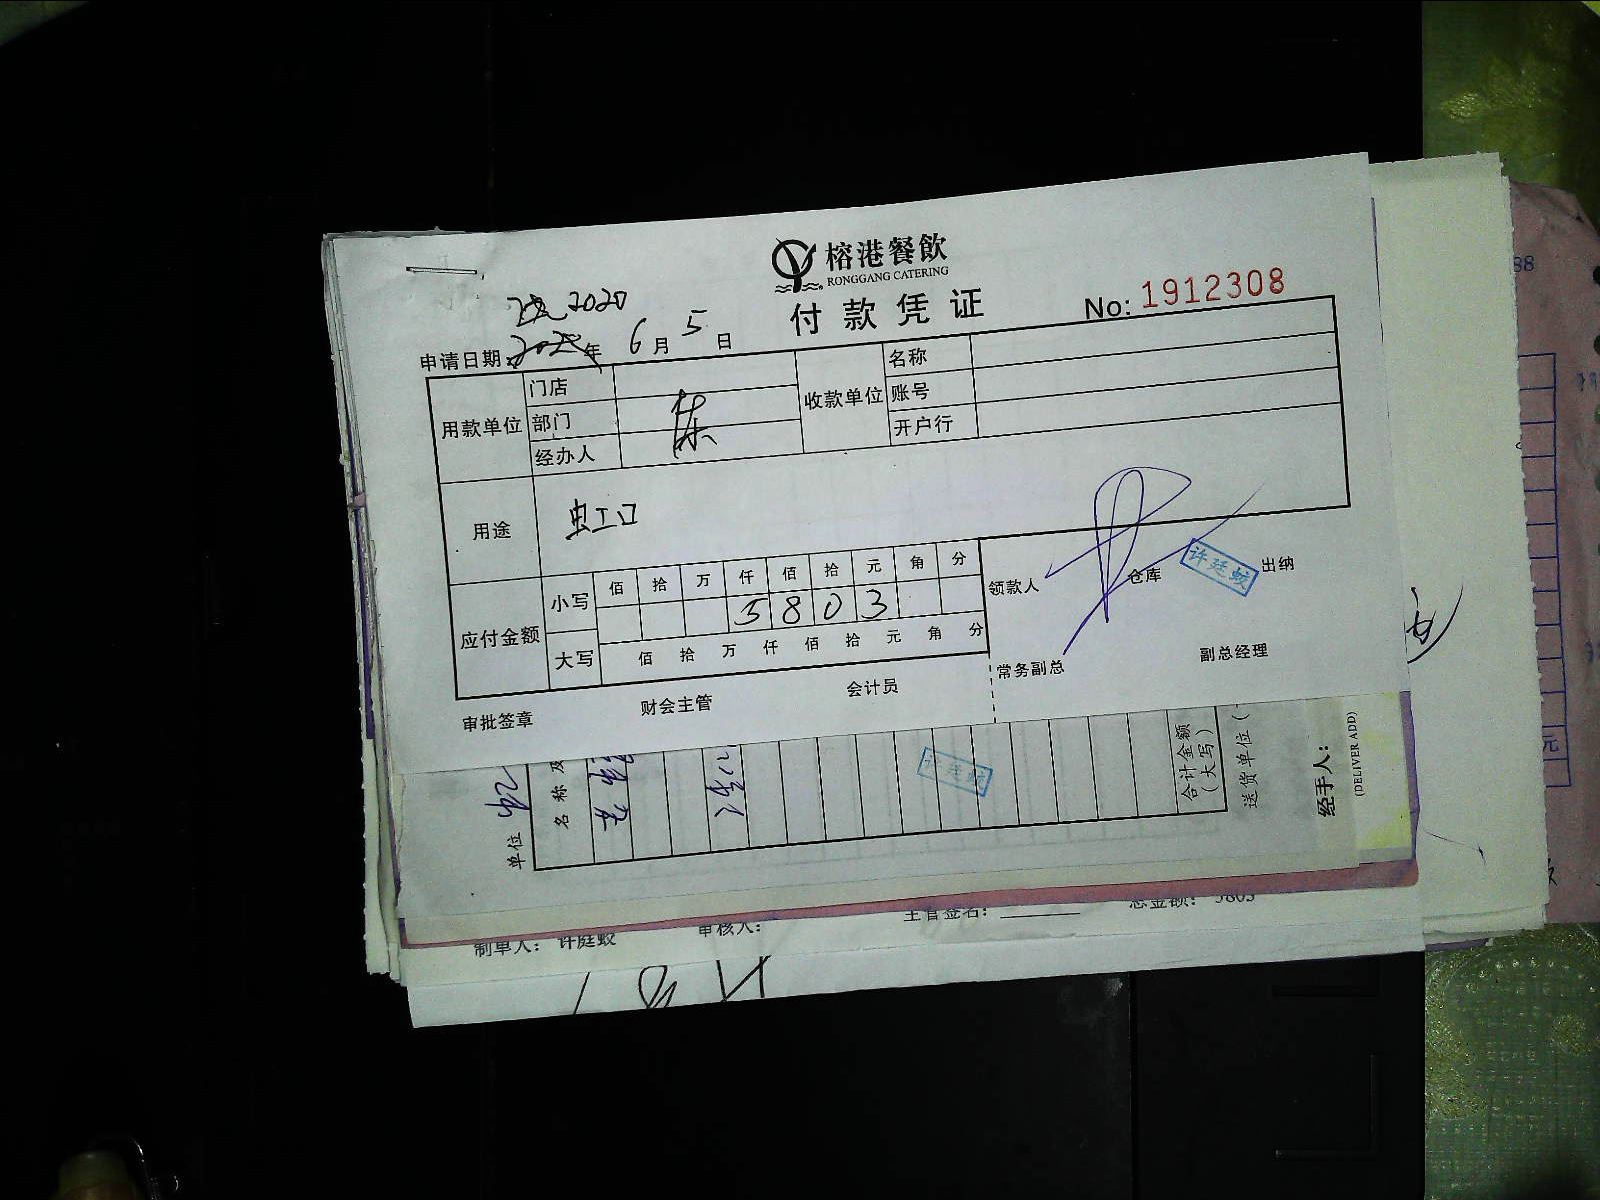 榕港餐飲
RONGGANG CATERING
付款凭证
No: 1912308
2020
申请日期 年 6 月 5 日
用款单位 门店 收款单位 名称
部门 账号
经办人 开户行
用途 虹口
应付金额 小写 佰 拾 万 仟 佰 拾 元 角 分
5 8 0 3
大写 佰 拾 万 仟 佰 拾 元 角 分
领款人 仓库 许廷蛟 出纳
常务副总 副总经理
审批签章 财会主管 会计员
单位
名称及
许廷蛟
合计金额
(大写)
送货单位(
经手人:
(DELIVER ADD)
制单人: 许庭蛟 审核人: 主管签名: 总金额: 5803
88
元